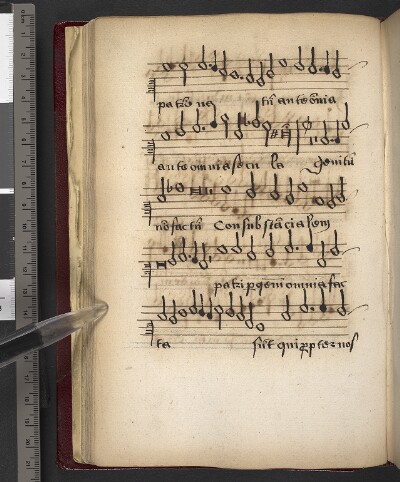 patre na tū ante om̄ia
ante omnia secu la genitū
nō factū Consubstācialem
patri p quem omnia fac
ta sūt qui ppter nos